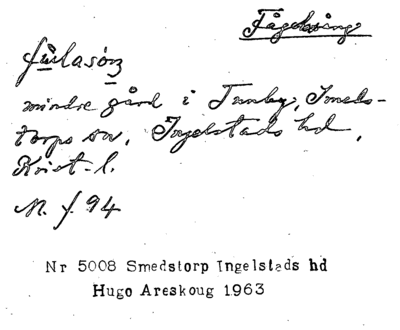 Fågelsång
fúlasọŋ
mindre gård i Tumby, Smeds-
torps sn, Ingelstads hd,
Krist. l.
M. f. 94
Nr 5008 Smedstorp Ingelstads hd
Hugo Areskoug 1963